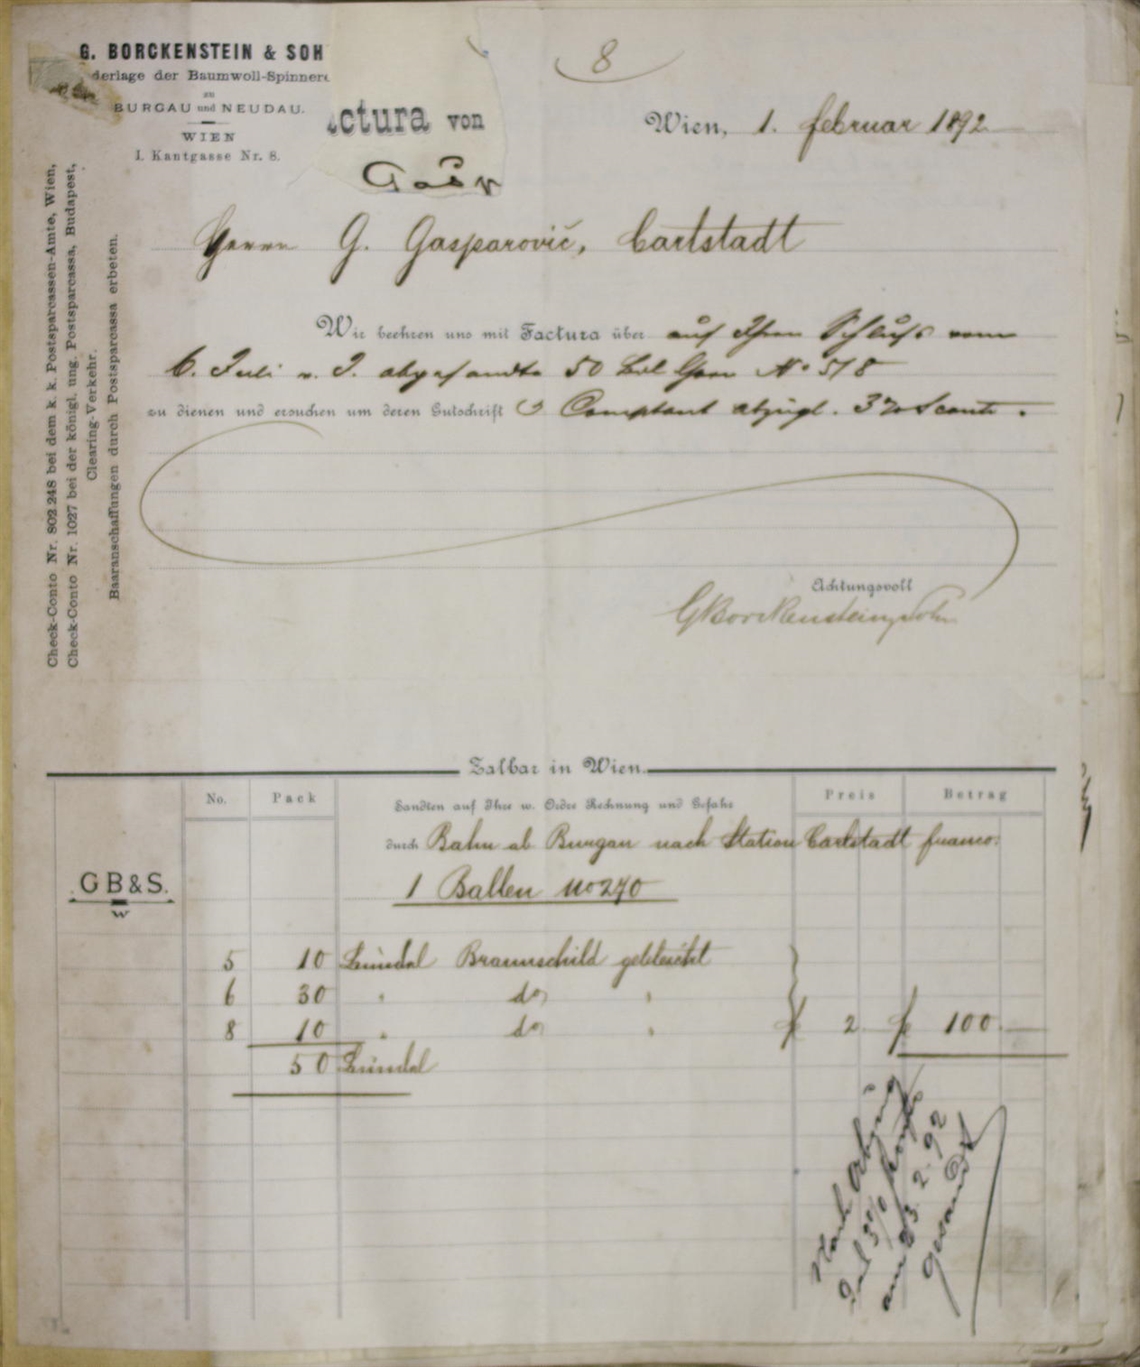 G. BORCKENSTEIN & SOH
derlage der Baumwoll-Spinnere
zu
BURGAU und NEUDAU.
WIEN
I. Kantgasse Nr. 8.
8
ctura von
Wien, 1. Februar 1892
Herrn G. Gasparovič, Carlstadt
Wir beehren uns mit Factura über auf Ihren Schluß vom
6. Juli v. J. abgesandte 50 Bdl Garn No 518
zu dienen und ersuchen um deren Gutschrift Comptant abzügl. 3% Sconto.
Achtungsvoll
GBorckenstein & Sohn
Check-Conto Nr. 802.248 bei dem k. k. Postsparcassen-Amte, Wien,
Check-Conto Nr. 1027 bei der königl. ung. Postsparcassa, Budapest,
Clearing-Verkehr.
Baaranschaffungen durch Postsparcassa erbeten.
Zalbar in Wien.
No. Pack Sandten auf Ihre w. Ordre Rechnung und Gefahr Preis Betrag
durch Bahn ab Burgau nach Station Carlstadt franco.
GB&S.
W
1 Ballen No 270
5 10 Bündel Braunschild gebleicht
6 30 " do "
8 10 " do " f 2 f 100
50 Bündel
Nach Abzug
3%
am 3.2.92
gesandt